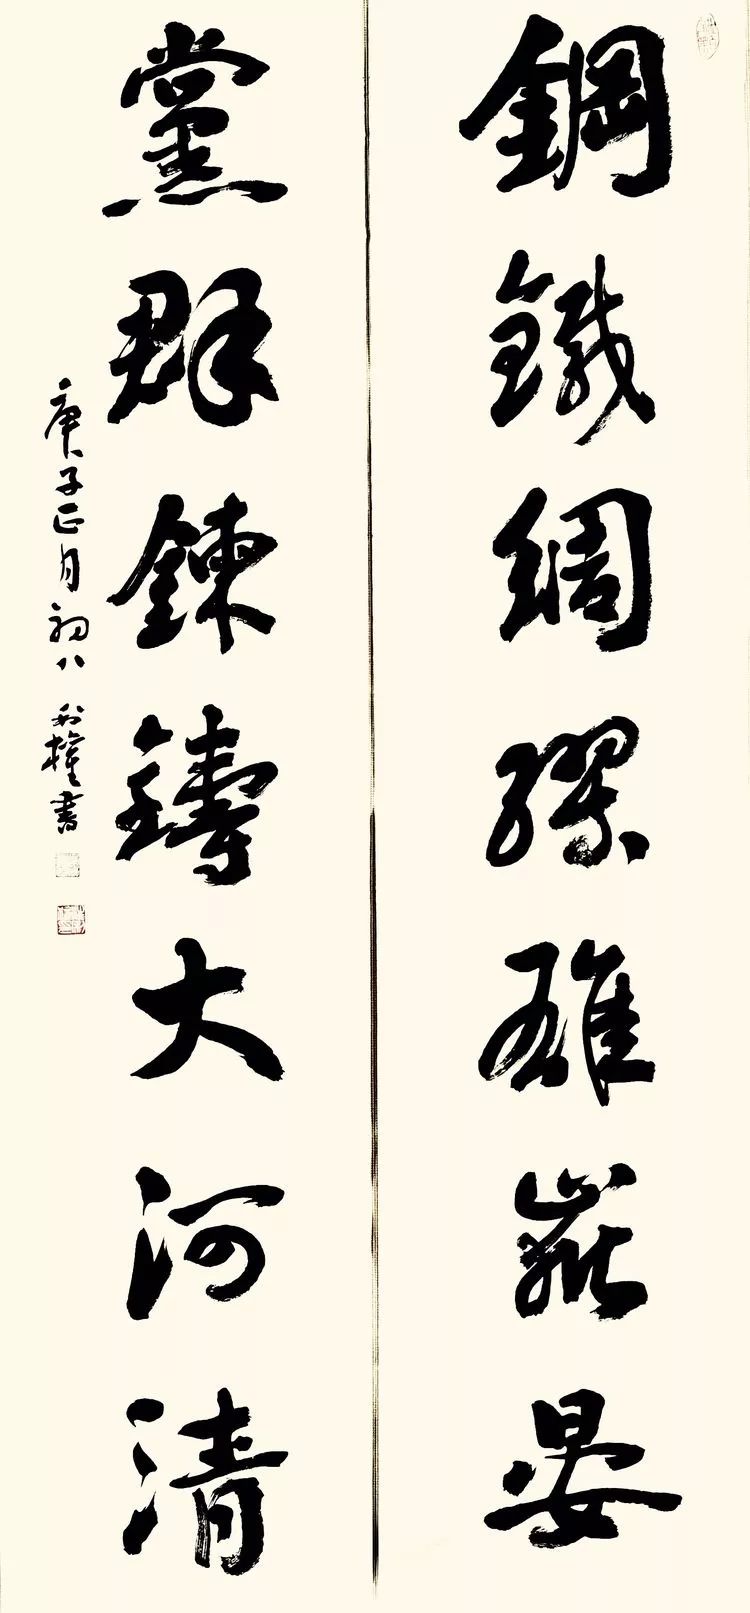 鋼鐵綢繆雄嶽晏
黨群鍊鑄大河清
庚子正月初八 權書